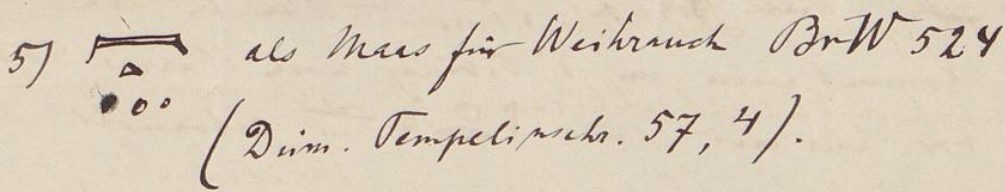 5) als Maas für Weihrauch Br W 524
(Düm. Tempelinschr. 57, 4).